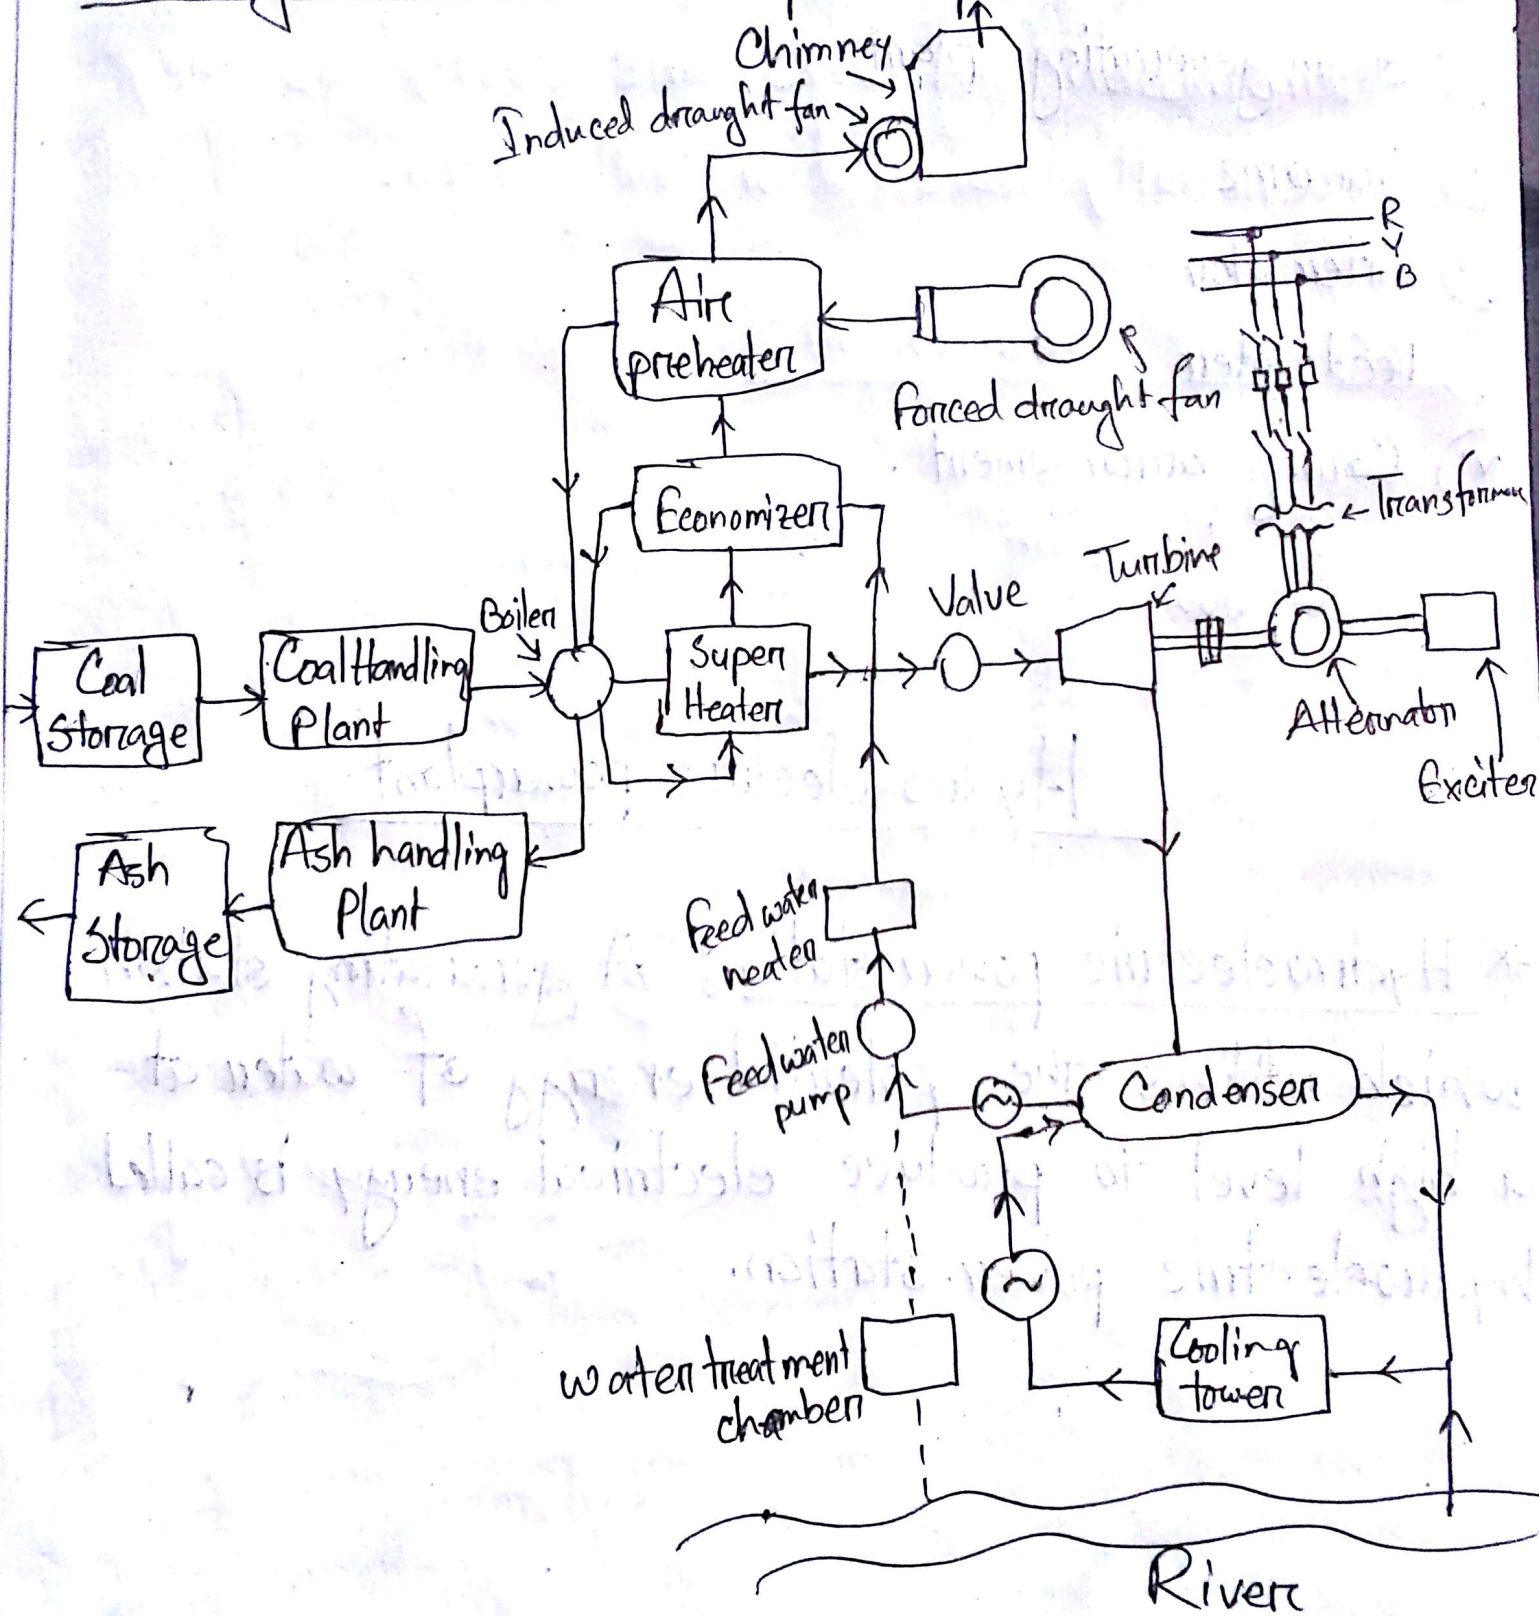 Chimney
Induced draught fan
R
Y
B
Air
preheater
Forced draught fan
Economizer
Transformer
Turbine
Valve
Boiler
Coal
Storage
Coal Handling
Plant
Super
Heater
Alternator
Exciter
Ash
Storage
Ash handling
Plant
Feed water
heater
Feed water
pump
Condenser
Cooling
tower
water treatment
chamber
River